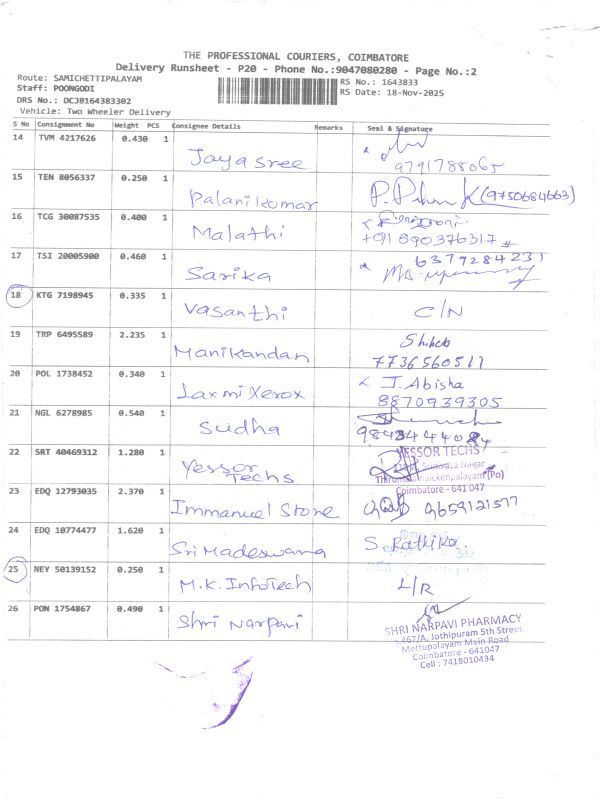 THE PROFESSIONAL COURIERS, COIMBATORE
Delivery Runsheet - P20 - Phone No.:9047080280 - Page No.:2
Route: SAMICHETTIPALAYAM
RS No.: 1643833
Staff: POONGODI
RS Date: 18-Nov-2025
DRS No.: DCJB164383302
Vehicle: Two Wheeler Delivery
S No Consignment No Weight PCS Consignee Details Remarks Seal & Signature
14 TVM 4217626 0.430 1
Jayasree 9791788065
15 TEN 8056337 0.250 1
Palanikumar (9750684663)
16 TCG 30087535 0.400 1
Malathi +91 890376317
17 TSI 20005900 0.460 1
Sarika 6379284231
18 KTG 7198945 0.335 1
Vasanthi C/N
19 TRP 6495589 2.235 1
Manikandan 7736560511
20 POL 1738452 0.340 1 J. Abisha
Laxmi Xerox 8870939305
21 NGL 6278985 0.540 1
Sudha
22 SRT 40469312 1.280 1 YESSOR TECHS
Yessor Techs
Coimbatore - 641 047
23 EDQ 12793035 2.370 1
Immanuel Stone 9659121577
24 EDQ 10774477 1.620 1
Sri Madeswara S. Rathika.
25 NEY 50139152 0.250 1
M.K. InfoTech L/R
26 PON 1754867 0.490 1
Shri Narpavi
SHRI NARPAVI PHARMACY
467/A, Jothipuram 5th Street
Mettupalayam Main Road
Coimbatore - 641047
Cell : 7418010434